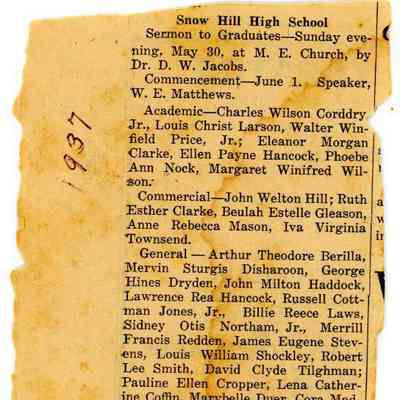 Snow Hill High School
Sermon to Graduates—Sunday eve-
ning, May 30, at M. E. Church, by
Dr. D. W. Jacobs.
Commencement—June 1. Speaker,
W. E. Matthews.
Academic—Charles Wilson Corddry,
Jr., Louis Christ Larson, Walter Win-
field Price, Jr.; Eleanor Morgan
Clarke, Ellen Payne Hancock, Phoebe
Ann Nock, Margaret Winifred Wil-
son.
Commercial—John Welton Hill; Ruth
Esther Clarke, Beulah Estelle Gleason,
Anne Rebecca Mason, Iva Virginia
Townsend.
General — Arthur Theodore Berilla,
Mervin Sturgis Disharoon, George
Hines Dryden, John Milton Haddock,
Lawrence Rea Hancock, Russell Cott-
man Jones, Jr., Billie Reece Laws,
Sidney Otis Northam, Jr., Merrill
Francis Redden, James Eugene Stev-
ens, Louis William Shockley, Robert
Lee Smith, David Clyde Tilghman;
Pauline Ellen Cropper, Lena Cather-
ine Coffin, Marybelle Duer, Cora Mad-
1937